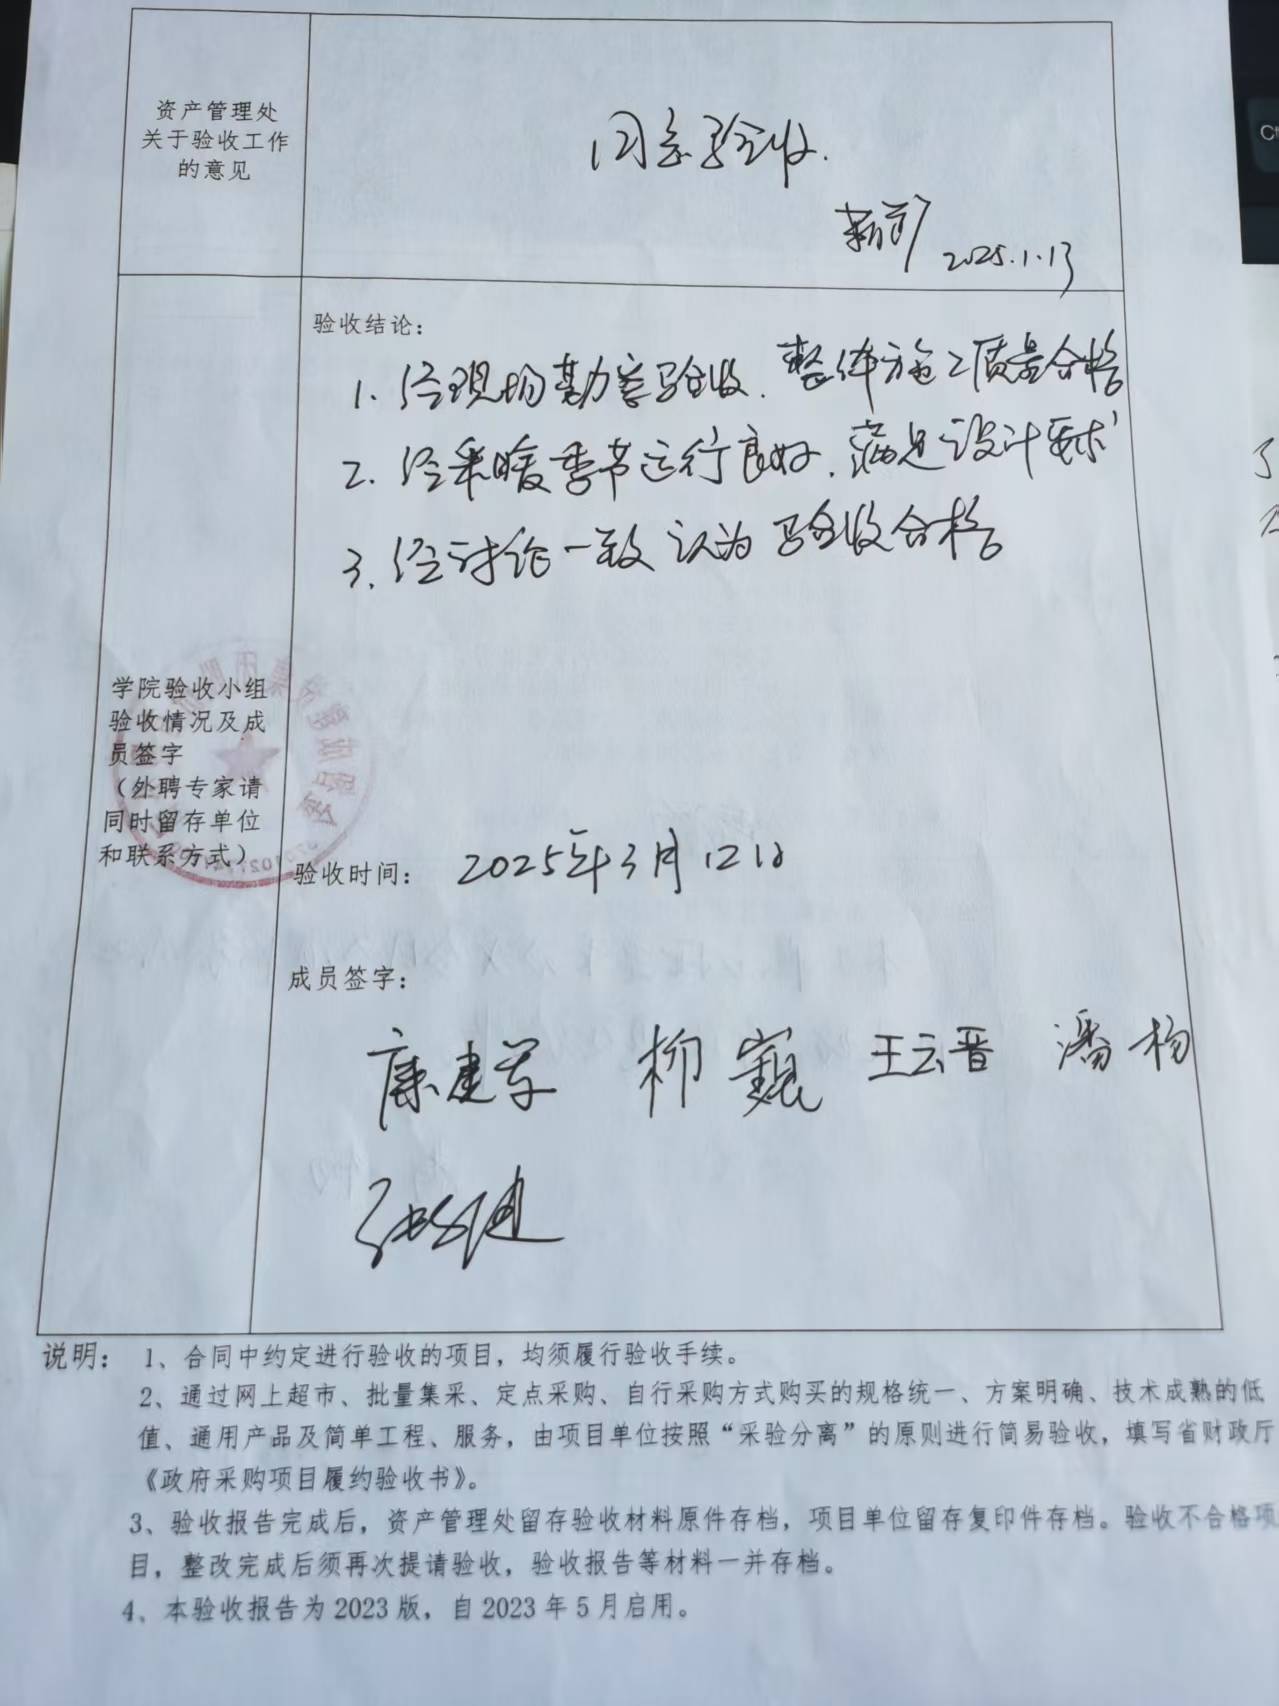 资产管理处
关于验收工作
的意见
同意验收.
2025.1.13
验收结论：
1. 经现场勘察验收. 整体施工质量合格
2. 经采暖季节运行良好. 满足设计要求
3. 经讨论一致认为验收合格
学院验收小组
验收情况及成
员签字
（外聘专家请
同时留存单位
和联系方式）
验收时间： 2025年3月12日
成员签字：
康建学 柳巍 王云晋 潘杨
说明： 1、合同中约定进行验收的项目，均须履行验收手续。
2、通过网上超市、批量集采、定点采购、自行采购方式购买的规格统一、方案明确、技术成熟的低
值、通用产品及简单工程、服务，由项目单位按照“采验分离”的原则进行简易验收，填写省财政厅
《政府采购项目履约验收书》。
3、验收报告完成后，资产管理处留存验收材料原件存档，项目单位留存复印件存档。验收不合格项
目，整改完成后须再次提请验收，验收报告等材料一并存档。
4、本验收报告为2023版，自2023年5月启用。